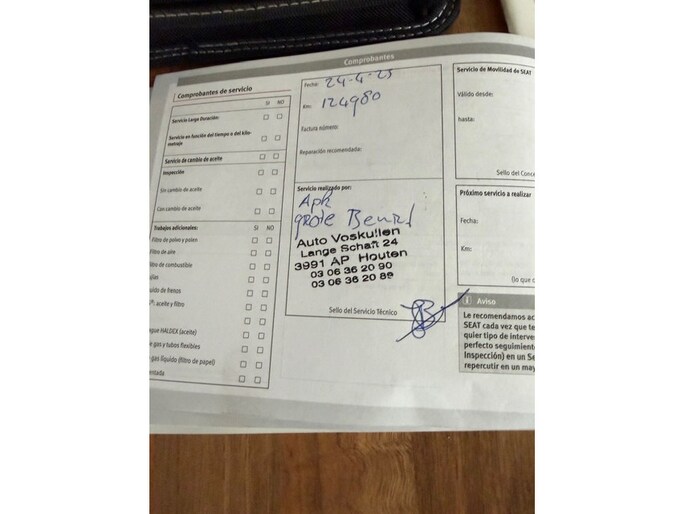 Comprobantes
Comprobantes de servicio
SI NO
Servicio Larga Duración:
Servicio en función del tiempo o del kilo-
metraje
Servicio de cambio de aceite
Inspección
Sin cambio de aceite
Con cambio de aceite
Trabajos adicionales: SI NO
Filtro de polvo y polen
Filtro de aire
ltro de combustible
jías
uido de frenos
aceite y filtro
gue HALDEX (aceite)
e gas y tubos flexibles
gas líquido (filtro de papel)
entada
Fecha: 24-4-25
Km: 124980
Factura número:
Reparación recomendada:
Servicio realizado por:
Apk
grote Beurt
Auto Voskuilen
Lange Schaft 24
3991 AP Houten
03 06 36 20 90
03 06 36 20 89
Sello del Servicio Técnico
Servicio de Movilidad de SEAT
Válido desde:
hasta:
Sello del Conce
Próximo servicio a realizar
Fecha:
Km:
(lo que o
Aviso
Le recomendamos ac
SEAT cada vez que te
quier tipo de interve
perfecto seguimient
Inspección) en un Se
repercutir en un may